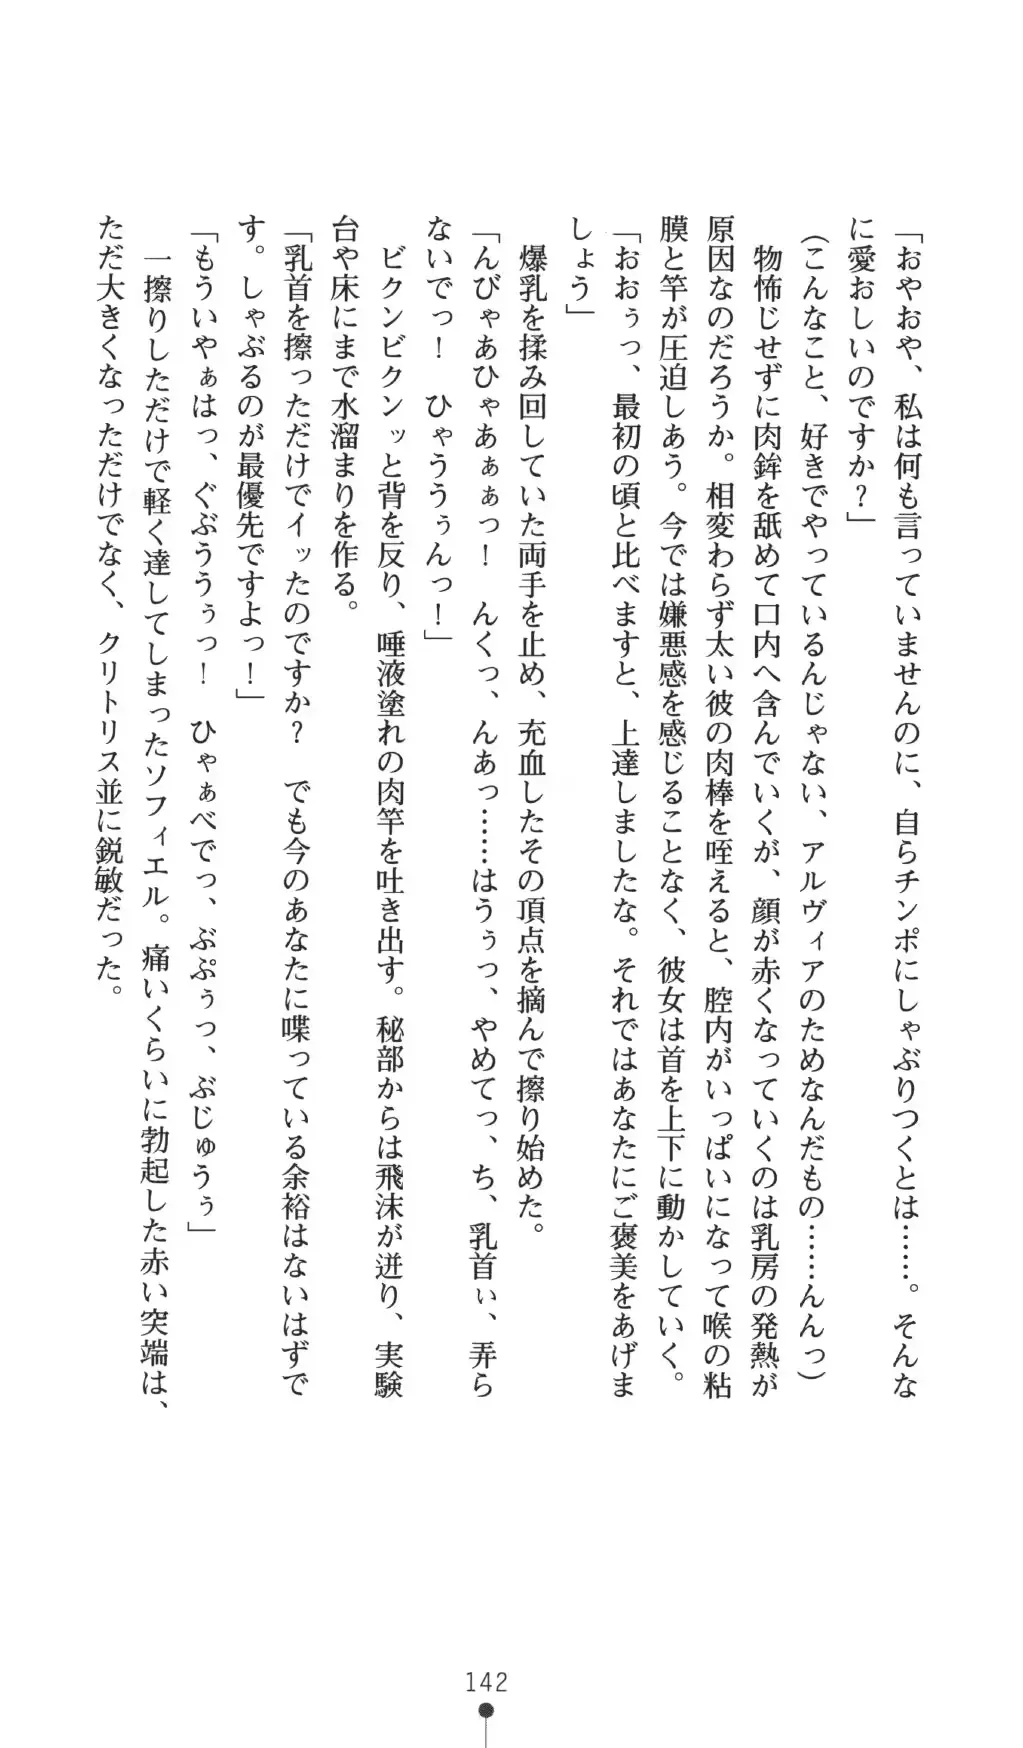 「おやおや、私は何も言っていませんのに、自らチンポにしゃぶりつくとは……。そんな
に愛おしいのですか？」
（こんなこと、好きでやっているんじゃない、アルヴィアのためなんだもの……んんっ）
　物怖じせずに肉鉾を舐めて口内へ含んでいくが、顔が赤くなっていくのは乳房の発熱が
原因なのだろうか。相変わらず太い彼の肉棒を咥えると、腔内がいっぱいになって喉の粘
膜と竿が圧迫しあう。今では嫌悪感を感じることなく、彼女は首を上下に動かしていく。
「おおぅっ、最初の頃と比べますと、上達しましたな。それではあなたにご褒美をあげま
しょう」
　爆乳を揉み回していた両手を止め、充血したその頂点を摘んで擦り始めた。
「んびゃあひゃあぁぁっ！　んくっ、んあっ……はうぅっ、やめてっ、ち、乳首ぃ、弄ら
ないでっ！　ひゃううぅんっ！」
　ビクンビクンッと背を反り、唾液塗れの肉竿を吐き出す。秘部からは飛沫が迸り、実験
台や床にまで水溜まりを作る。
「乳首を擦っただけでイッたのですか？　でも今のあなたに喋っている余裕はないはずで
す。しゃぶるのが最優先ですよっ！」
「もういやぁはっ、ぐぶううぅっ！　ひゃぁべでっ、ぶぷぅっ、ぶじゅうぅ」
　一擦りしただけで軽く達してしまったソフィエル。痛いくらいに勃起した赤い突端は、
ただ大きくなっただけでなく、クリトリス並に鋭敏だった。
142